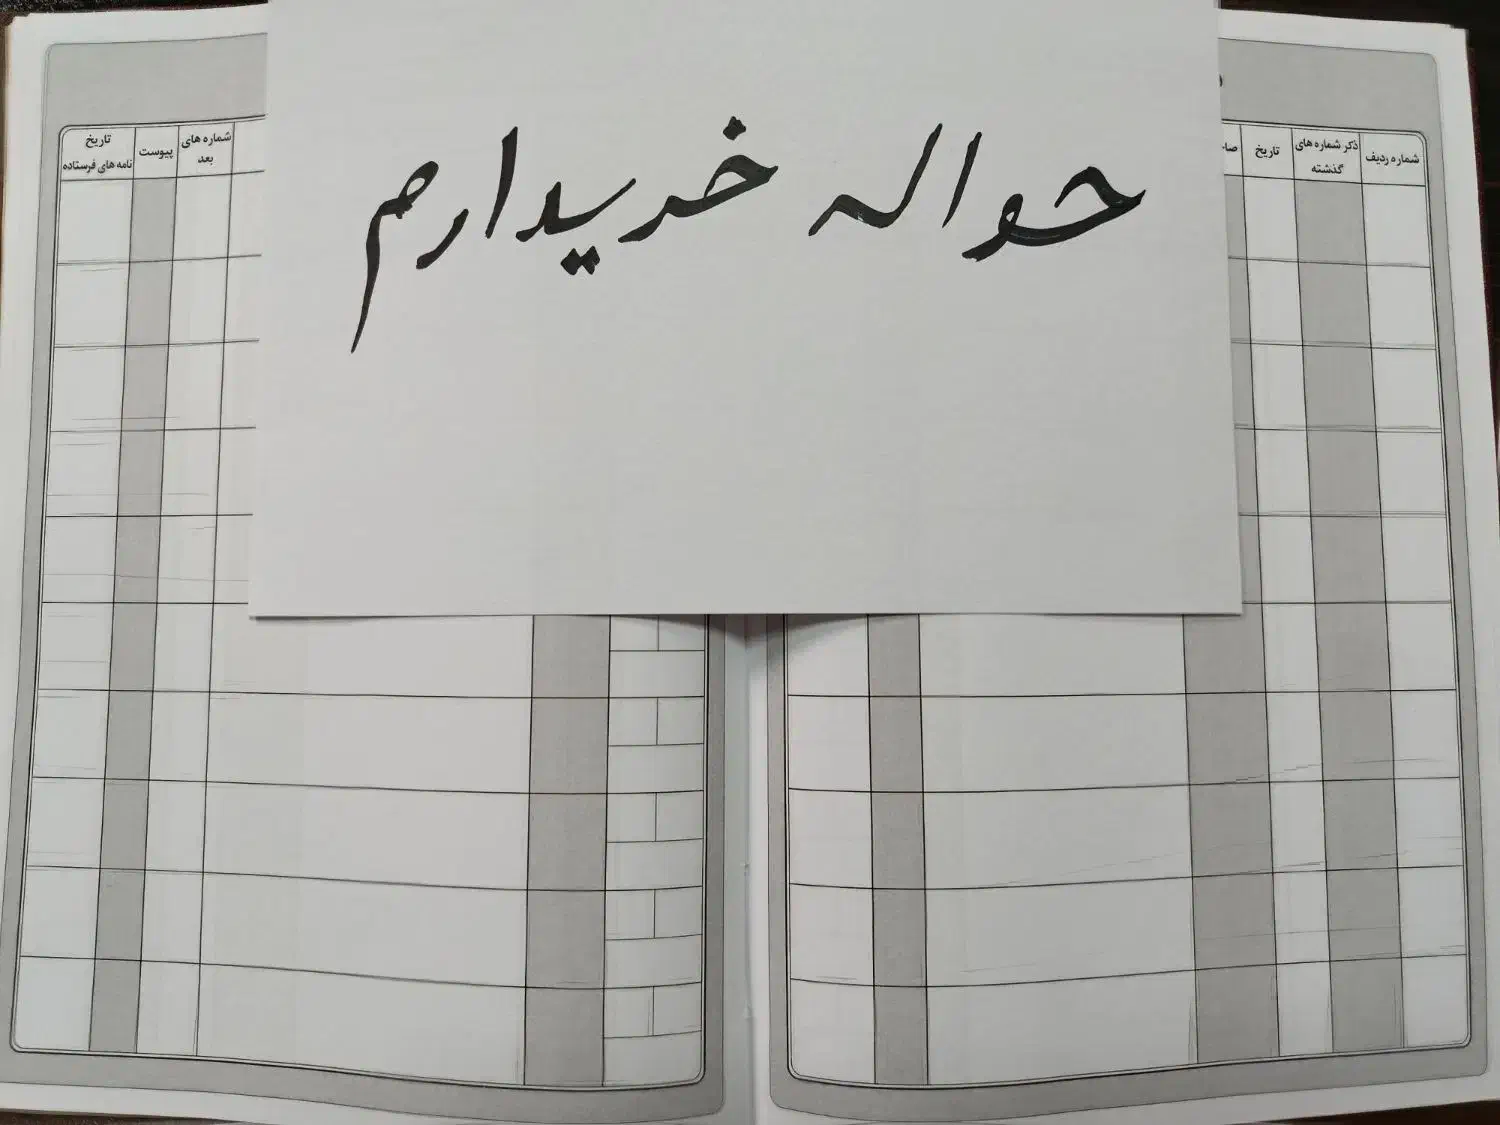 حواله خریدارم
شماره ردیف
ذکر شماره های گذشته
تاریخ
شماره های بعد
پیوست
تاریخ نامه های فرستاده